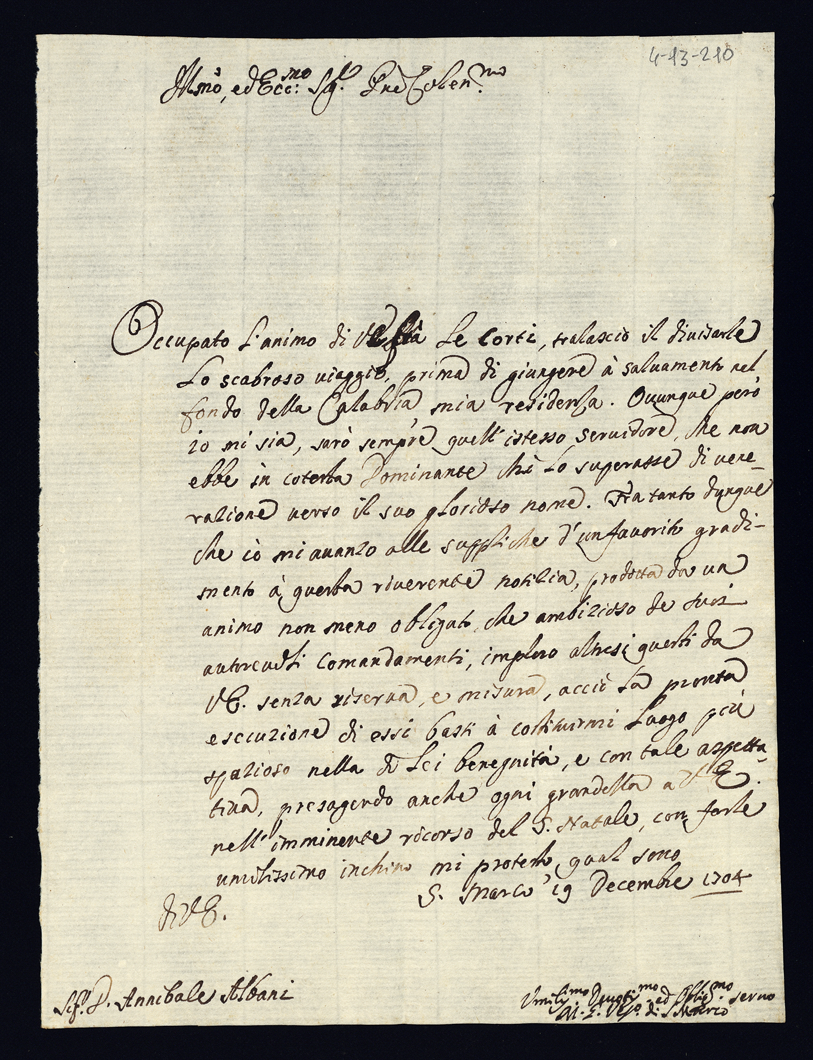 4-13-210
Ill.mo, ed Ecc.mo Sig.r Pne Colen.mo
Occupato l'animo di VE frà le corti, tralascio il divisarle
lo scabroso viaggio, prima di giungere à salvamento nel
fondo della Calabria mia residenza. Ovunque però
io mi sia, sarò sempre quell'istesso servidore, che non
ebbe in cotesta Dominante chi lo superasse di vene-
razione verso il suo glorioso nome. Fra tanto dunque
che io mi avanzo alle suppliche d'un favorito gradi-
mento à questa riverente notizia, prodotta da un
animo non meno obligato, che ambizioso de suoi
autorevoli comandamenti, imploro altresi questi da
VE. senza riserva, e misura, acciò la pronta
esecuzione di essi basti à costituirmi luogo più
spazioso nella di lei benegnità, e con tale aspetta-
tiva, presagendo anche ogni grandezza a VE.
nell'imminente ricorso del S. Natale, con farle
umilissimo inchino mi protesto, qual sono
S. Marco 19 Decembre 1704
di VE.
Sig.r D. Annibale Albani
Umiliss.mo Devotiss.mo ed Oblig.mo servo
di S Marco